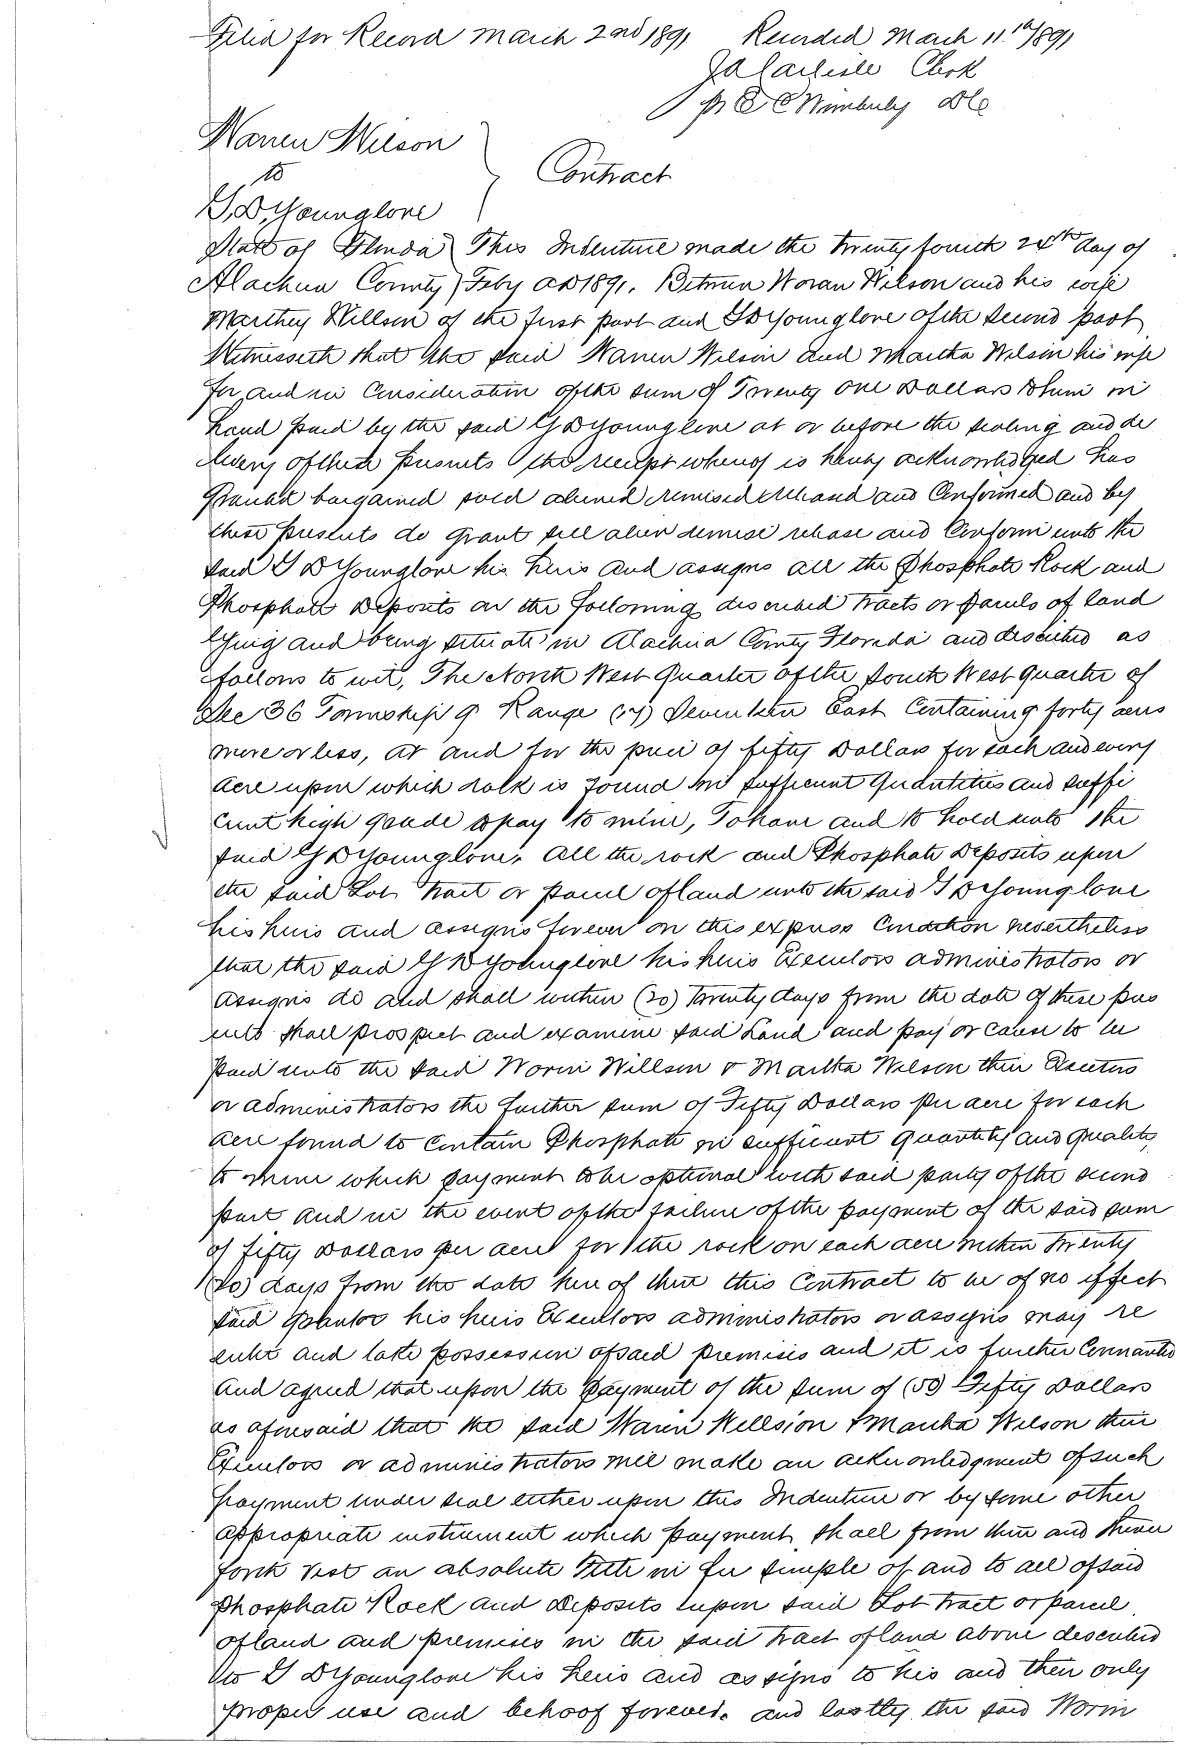 Filed for Record March 2nd 1891 Recorded March 11th 1891
J A Carlisle Clerk
pr E C Wimberly D C
Warren Wilson
to
Contract
G. D. Younglove
State of Florida This Indenture made the Twenty fourth 24th day of
Alachua County Feby AD 1891. Between Woran Wilson and his wife
Marthey Willson of the first part and G D Younglove of the Second part
Witnesseth that the said Warren Wilson and Martha Wilson his wife
for and in Consideration of the sum of Twenty one Dollars to him in
hand paid by the said G D Younglove at or before the sealing and de
livery of these presents the receipt whereof is hereby acknowledged has
Granted bargained sold aliened remised released and Confirmed and by
these presents do grant sell alien demise release and Confirm unto the
said G D Younglove his heirs and assigns all the Phosphate Rock and
Phosphate Deposits on the following described tracts or parcels of land
lying and being situate in Alachua County Florida and described as
follows to wit, The North West Quarter of the South West quarter of
Sec 36 Township 9 Range (17) Seventeen East Containing forty acres
more or less, at and for the price of fifty Dollars for each and every
acre upon which rock is found in sufficient Quantities and suffi
cient high grade to pay to mine, To have and to hold unto the
said G D Younglove. All the rock and Phosphate Deposits upon
the said Lot tract or parcel of land unto the said G D Younglove
his heirs and assigns forever on this express Condition nevertheless
that the said G D Younglove his heirs Executors administrators or
assigns do and shall within (20) Twenty days from the date of these pres
ents shall prospect and examine said Land and pay or cause to be
paid unto the said Worin Willson & Martha Wilson their Executors
or administrators the further sum of Fifty Dollars per acre for each
acre found to contain Phosphate in sufficient quantity and quality
to mine which payment to be optional with said party of the second
part and in the event of the failure of the payment of the said sum
of fifty Dollars per acre for the rock on each acre within Twenty
(20) days from the date here of then this Contract to be of no effect
said grantor his heirs Executors administrators or assigns may re
enter and take possession of said premises and it is further Convanted
and agreed that upon the payment of the sum of (50) Fifty Dollars
as aforesaid that the said Warin Willsion & Martha Wilson their
Executors or administrators will make an acknowledgment of such
payment under seal either upon this Indenture or by some other
appropriate instrument which payment shall from then and thence
forth vest an absolute Title in fee simple of and to all of said
Phosphate Rock and Deposits upon said Lot tract or parcel
of land and premises in the said tract of land above described
to G D Younglove his heirs and assigns to his and their only
proper use and behoof forever. and lastly the said Worin